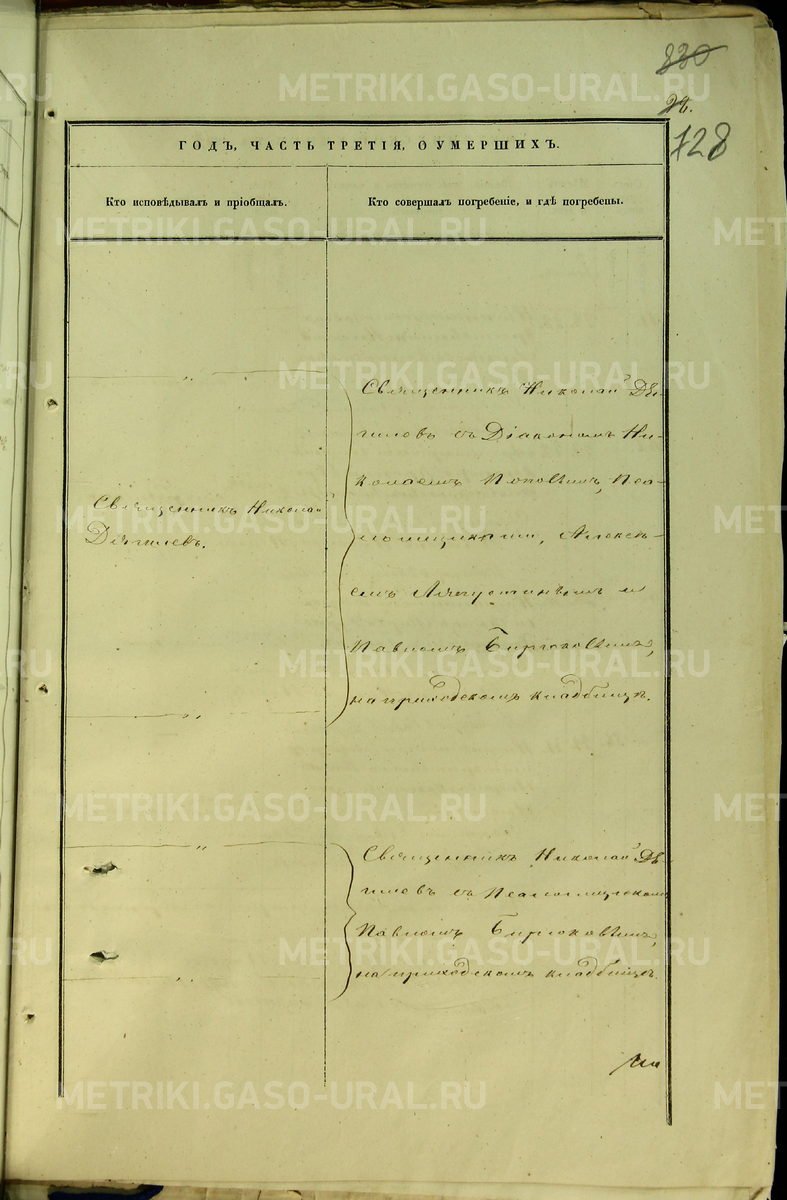 830
28.
728
ГОДЪ, ЧАСТЬ ТРЕТІЯ, О УМЕРШИХЪ.
Кто исповѣдывалъ и пріобщалъ.
Кто совершалъ погребеніе, и гдѣ погребены.
Священникъ Николай
Дягилевъ.
Священникъ Николай Дя-
гилевъ съ Діакономъ Ни-
колаемъ Поповымъ, Пса-
ломщиками, Алексѣ-
емъ и
Павломъ Бирюковымъ,
на приходскомъ кладбищѣ.
Священникъ Николай Дя-
гилевъ съ Псаломщикомъ
Павломъ Бирюковымъ,
на приходскомъ кладбищѣ.
METRIKI.GASO-URAL.RU